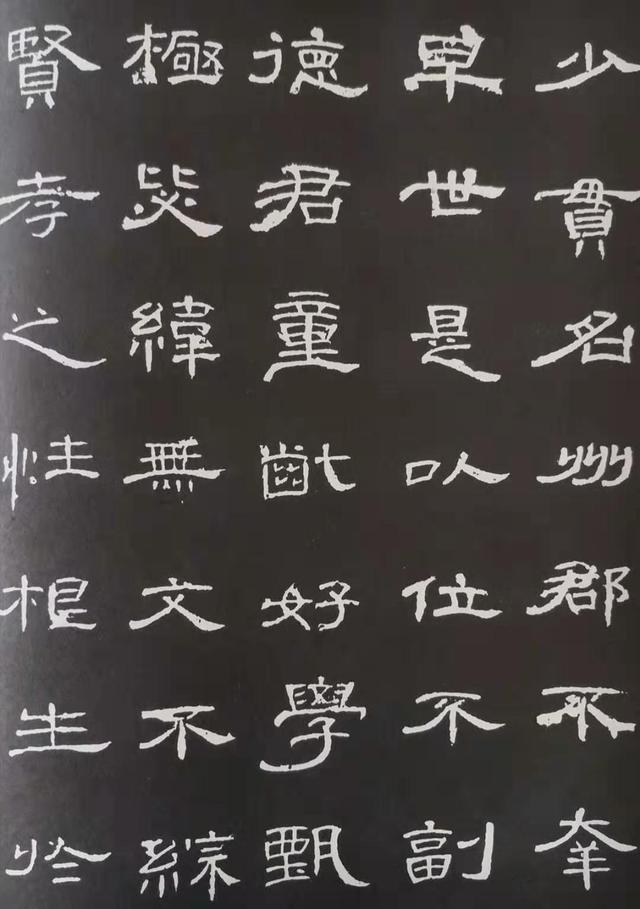 少貫名州郡不幸
早世是以位不副
德君童齔好學甄
極毖緯無文不綜
賢孝之性根生於